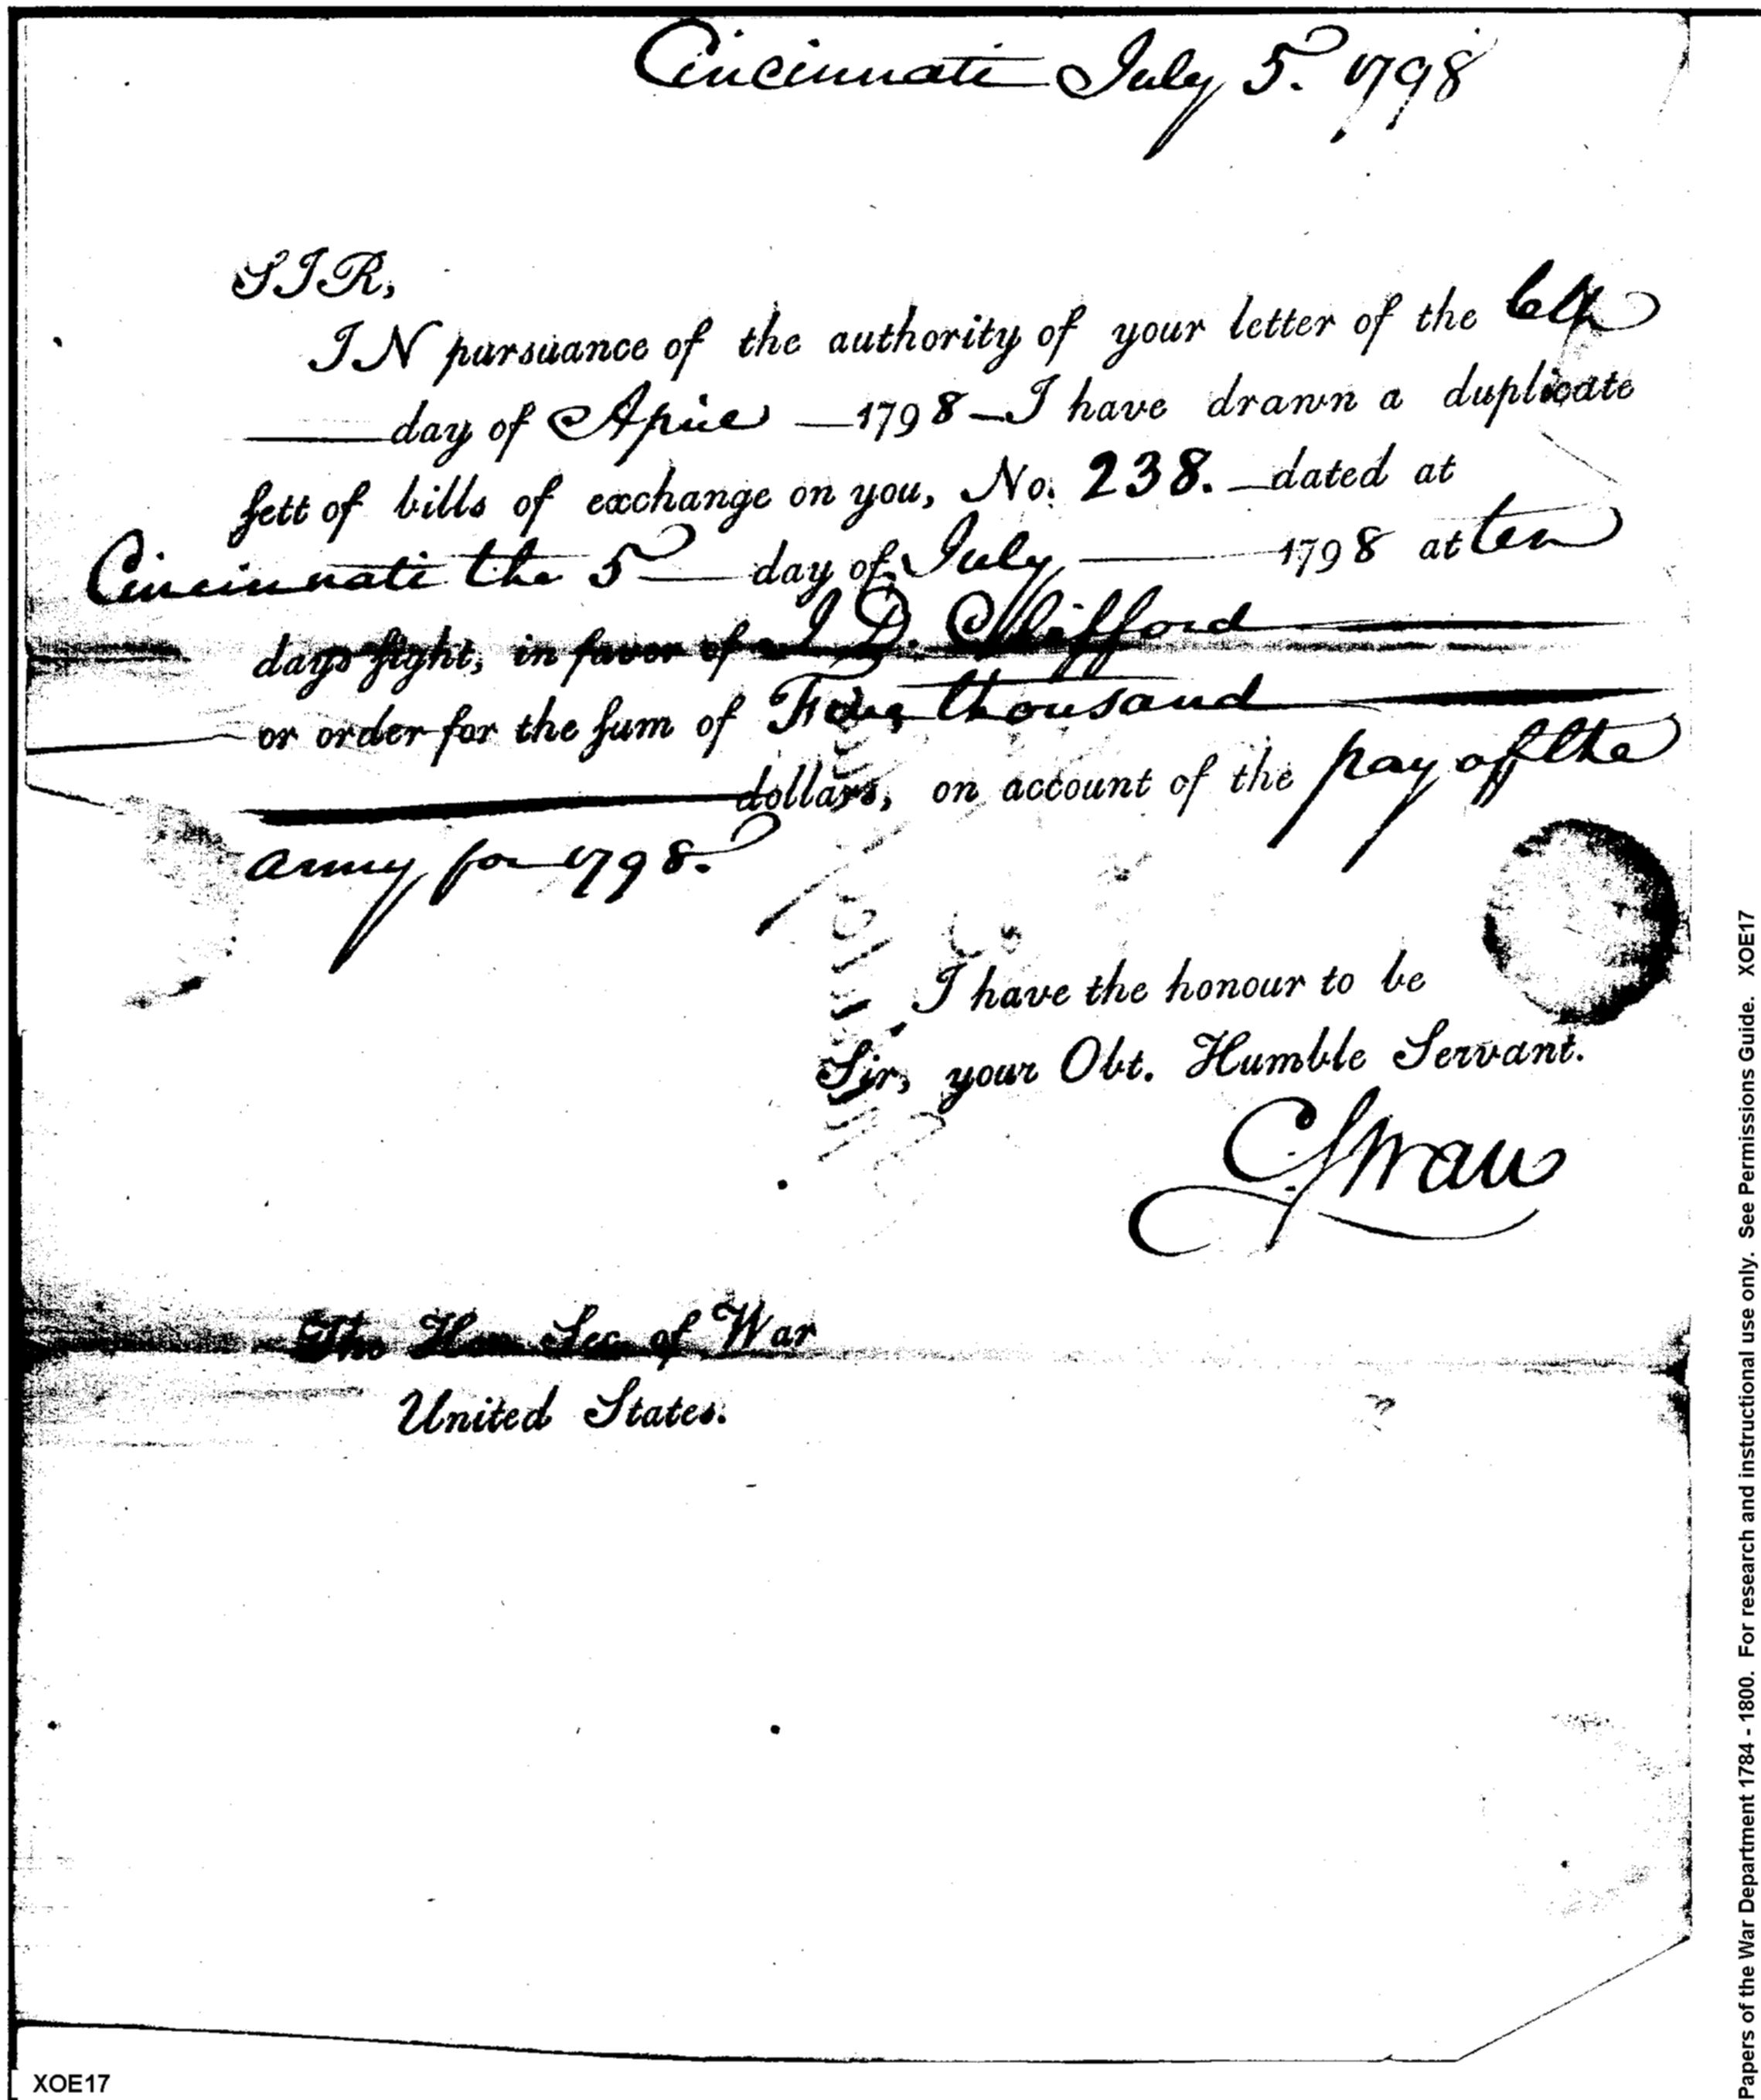 Cincinnati July 5. 1798
SIR,
IN pursuance of the authority of your letter of the 6th
day of April 1798 I have drawn a duplicate
sett of bills of exchange on you, No. 238. dated at
Cincinnati the 5 day of July 1798 at ten
days sight, in favor of J. D. Clifford
or order for the sum of thousand
dollars, on account of the pay of the
army for 1798.
I have the honour to be
Sir, your Obt. Humble Servant.
C Swan
The Hon Sec of War
United States.
Papers of the War Department 1784 - 1800. For research and instructional use only. See Permissions Guide. XOE17
XOE17